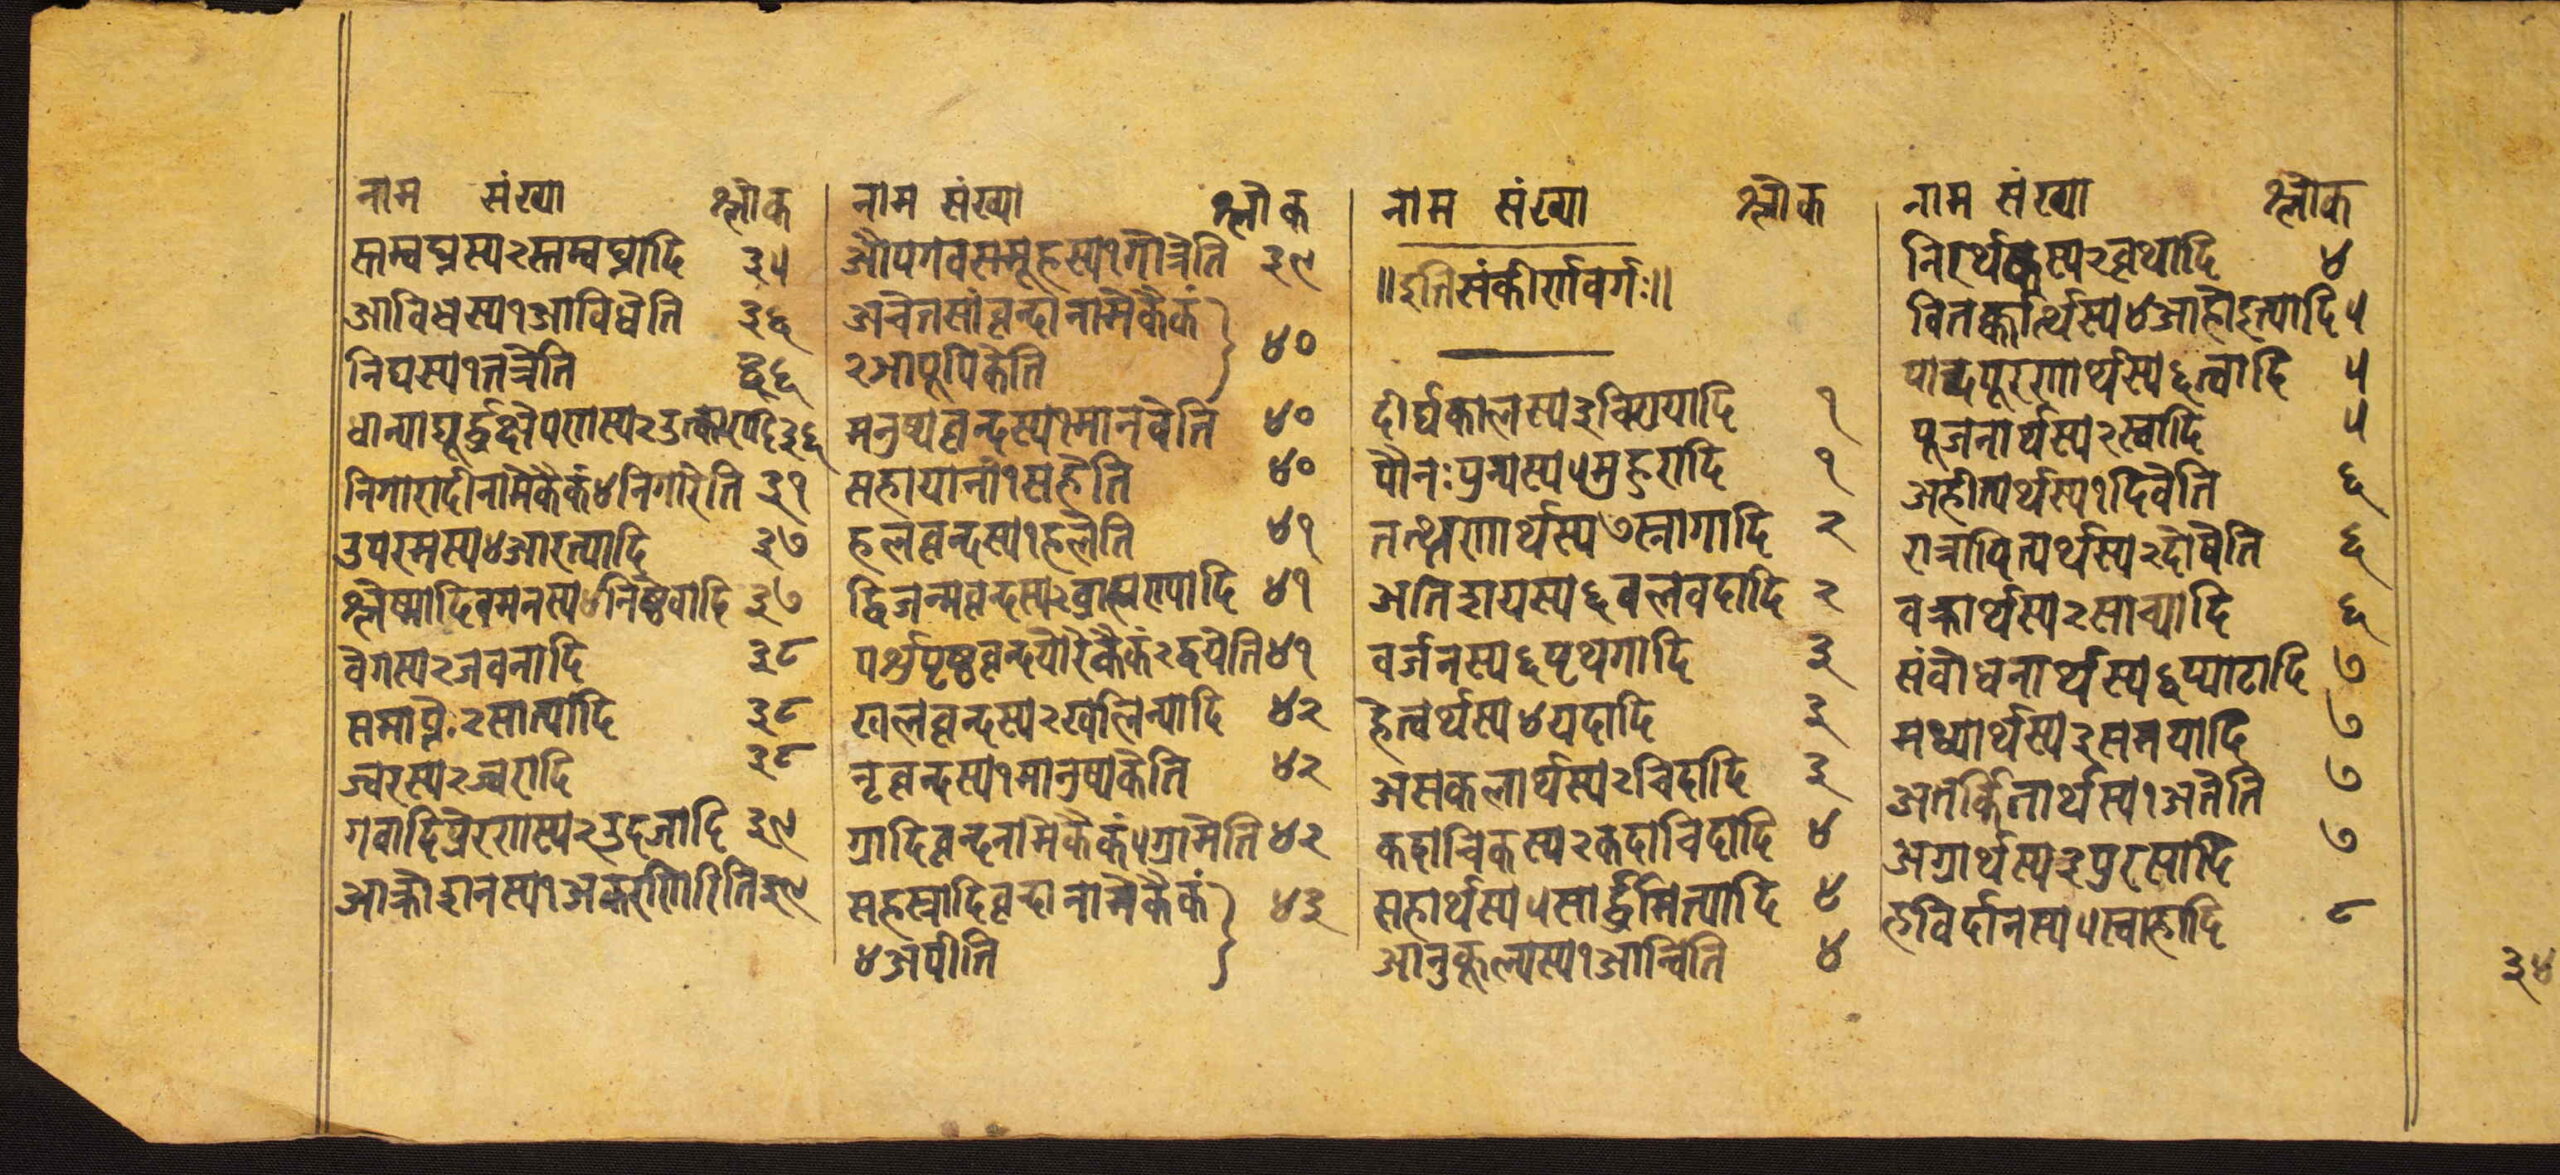 नाम संख्या श्लोक
स्तम्वघ्नस्य २ स्तम्वघ्नादि ३५
आविधस्य १ आविधेति ३६
निघस्य १ तत्रेति ३६
धान्याद्यूर्द्धक्षेपणस्य २ उत्कारादि ३६
निगारादीनामेकैकं ४ निगारेति ३१
उपरमस्य ४ आरत्यादि ३७
श्लेष्मादिवमनस्य ४ निष्ठेवादि ३७
वेगस्य २ जवनादि ३८
समाप्तेः २ सात्यादि ३८
ज्वरस्य २ ज्वरादि ३८
गवादिप्रेरणस्य २ उदजादि ३९
आक्रोशनस्य १ अकरणिरिति ३९
नाम संख्या श्लोक
औपगवसमूहस्य १ गोत्रेति ३९
अचेतसां वृन्दानामेकैकं
२ आपूपिकेति ४०
मनुष्यवृन्दस्य १ मानवेति ४०
सहायानां १ सहेति ४०
हलवृन्दस्य १ हलेति ४१
द्विजन्मवृन्दस्य २ ब्राह्मण्यादि ४१
पर्शुपृष्ठवृन्दयोरेकैकं २ द्वयेति ४१
खलवृन्दस्य २ खलिन्यादि ४२
नृवृन्दस्य १ मानुष्यकेति ४२
ग्रादिवृन्दनामेकैकं ५ ग्रामेति ४२
सहस्रादिवृन्दानामेकैकं ४३
४ अपीति
नाम संख्या श्लोक
॥ इति संकीर्णवर्गः ॥
दीर्घकालस्य ३ चिरायादि १
पौनःपुन्यस्य ५ मुहुरादि १
तत्क्षणार्थस्य ७ स्नागादि २
अतिशयस्य ६ बलवदादि २
वर्जनस्य ६ पृथगादि ३
हेत्वर्थस्य ४ यदादि ३
असकलार्थस्य २ चिदादि ३
कदाचिकस्य २ कदाचिदादि ४
सहार्थस्य ५ सार्द्धमित्यादि ४
आनुकूल्यस्य १ आन्विति ४
नाम संख्या श्लोक
निरर्थकस्य २ वृथादि ४
वितर्कार्त्थस्य ४ आहोइत्यादि ५
पादपूरणार्थस्य ६ त्वादि ५
पूजनार्थस्य २ स्वादि ५
अहीत्यर्थस्य १ दिवेति ६
रात्रावित्यर्थस्य २ दोषेति ६
वक्रार्थस्य २ साच्यादि ६
संवोधनार्थस्य ६ प्याटादि ७
मध्यार्थस्य ३ समयादि ७
अतर्कितार्थस्य १ अतेति ७
अग्रार्थस्य ३ पुरसादि ७
हविर्दानस्य ५ स्वाहादि ८
३४